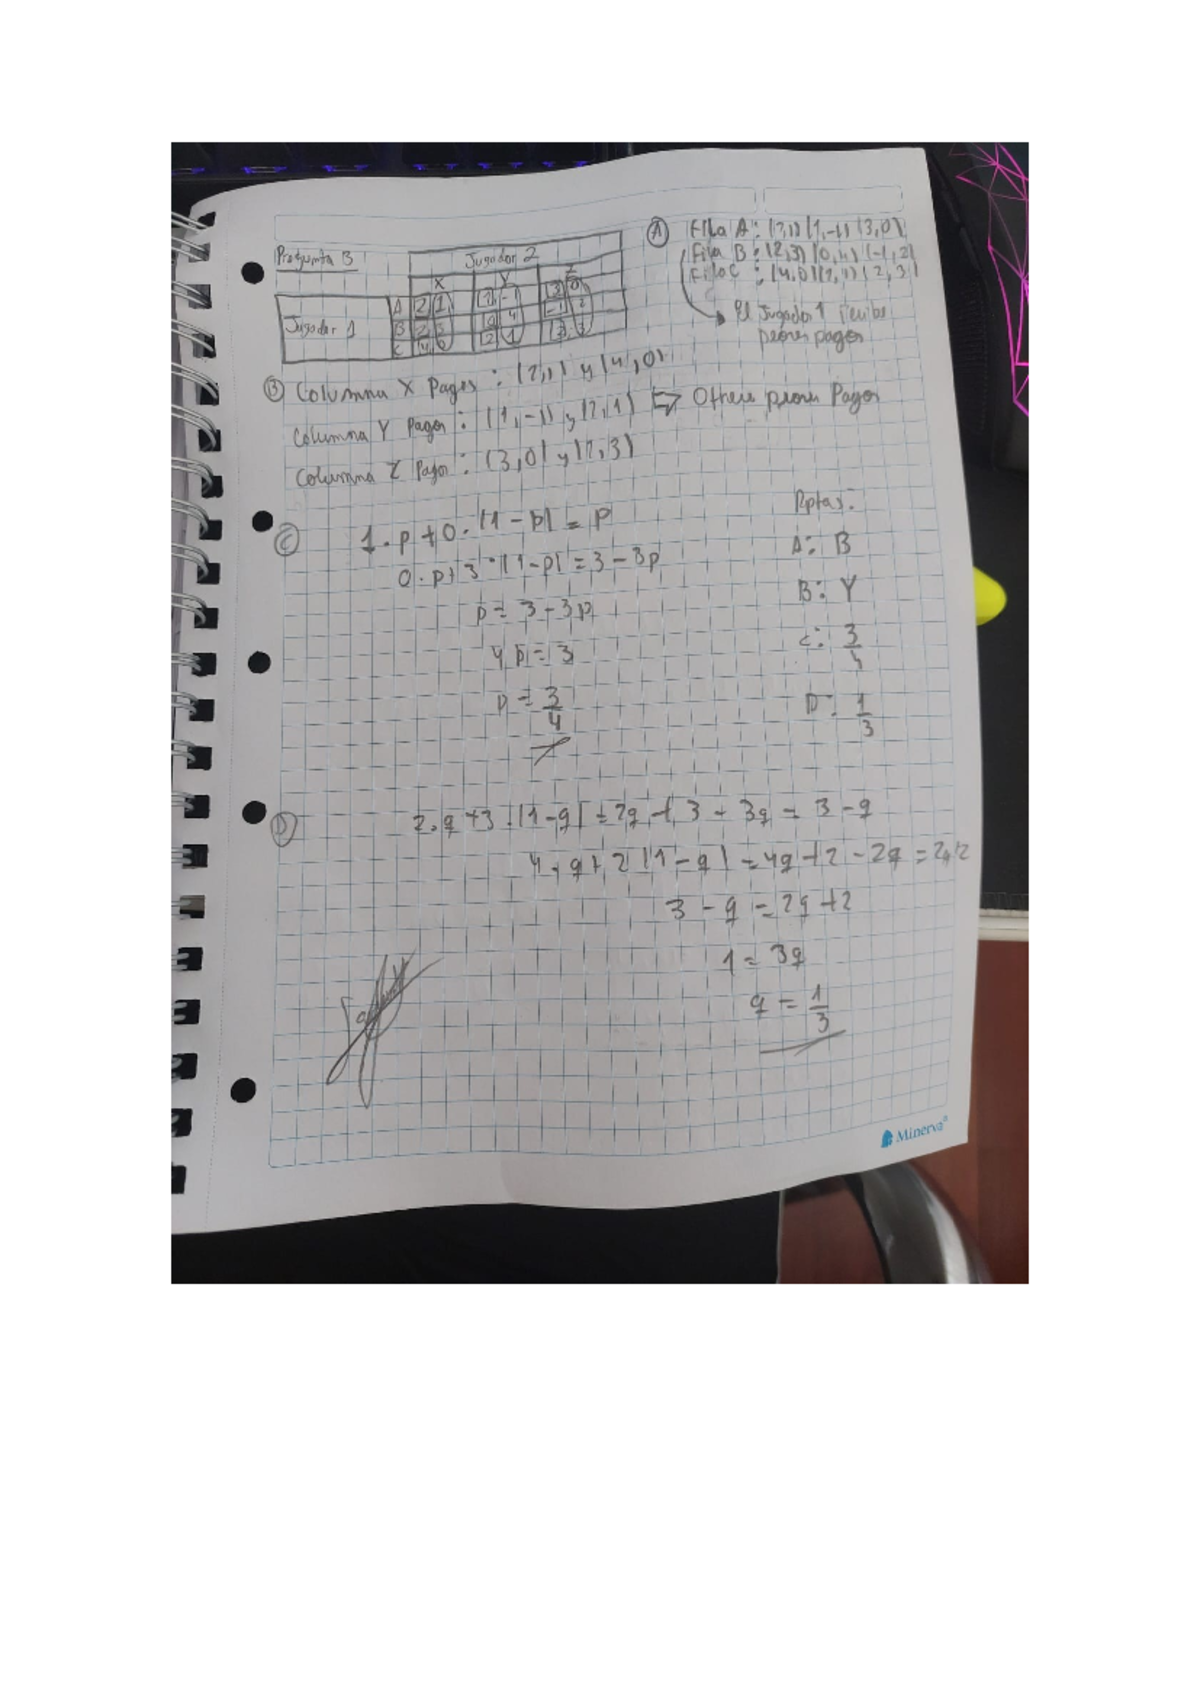 Pregunta B
Jugador 2
X Y Z
Jugador 1
A 2 1 1 -1 3 0
B 2 3 0 4 -1 2
C 4 0 2 1
A Fila A: (2,1) (1,-1) (3,0)
Fila B: (2,3) (0,4) (-1,2)
Fila C: (4,0) (2,1) (2,3)
El Jugador 1 recibe
peores pagos
B Columna X Pagos: (2,1) y (4,0)
Columna Y Pagos: (1,-1) y (2,1) ⇒ Ofrece peores Pagos
Columna Z Pagos: (3,0) y (2,3)
C 1·p + 0·(1-p) = p
0·p + 3·(1-p) = 3-3p
p = 3-3p
4p = 3
p = 3/4
Rptas:
A: B
B: Y
C: 3/4
D: 1/3
D 2·q + 3·(1-q) = 2q + 3 - 3q = 3-q
4·q + 2(1-q) = 4q + 2 - 2q = 2q+2
3-q = 2q+2
1 = 3q
q = 1/3
Minerva®